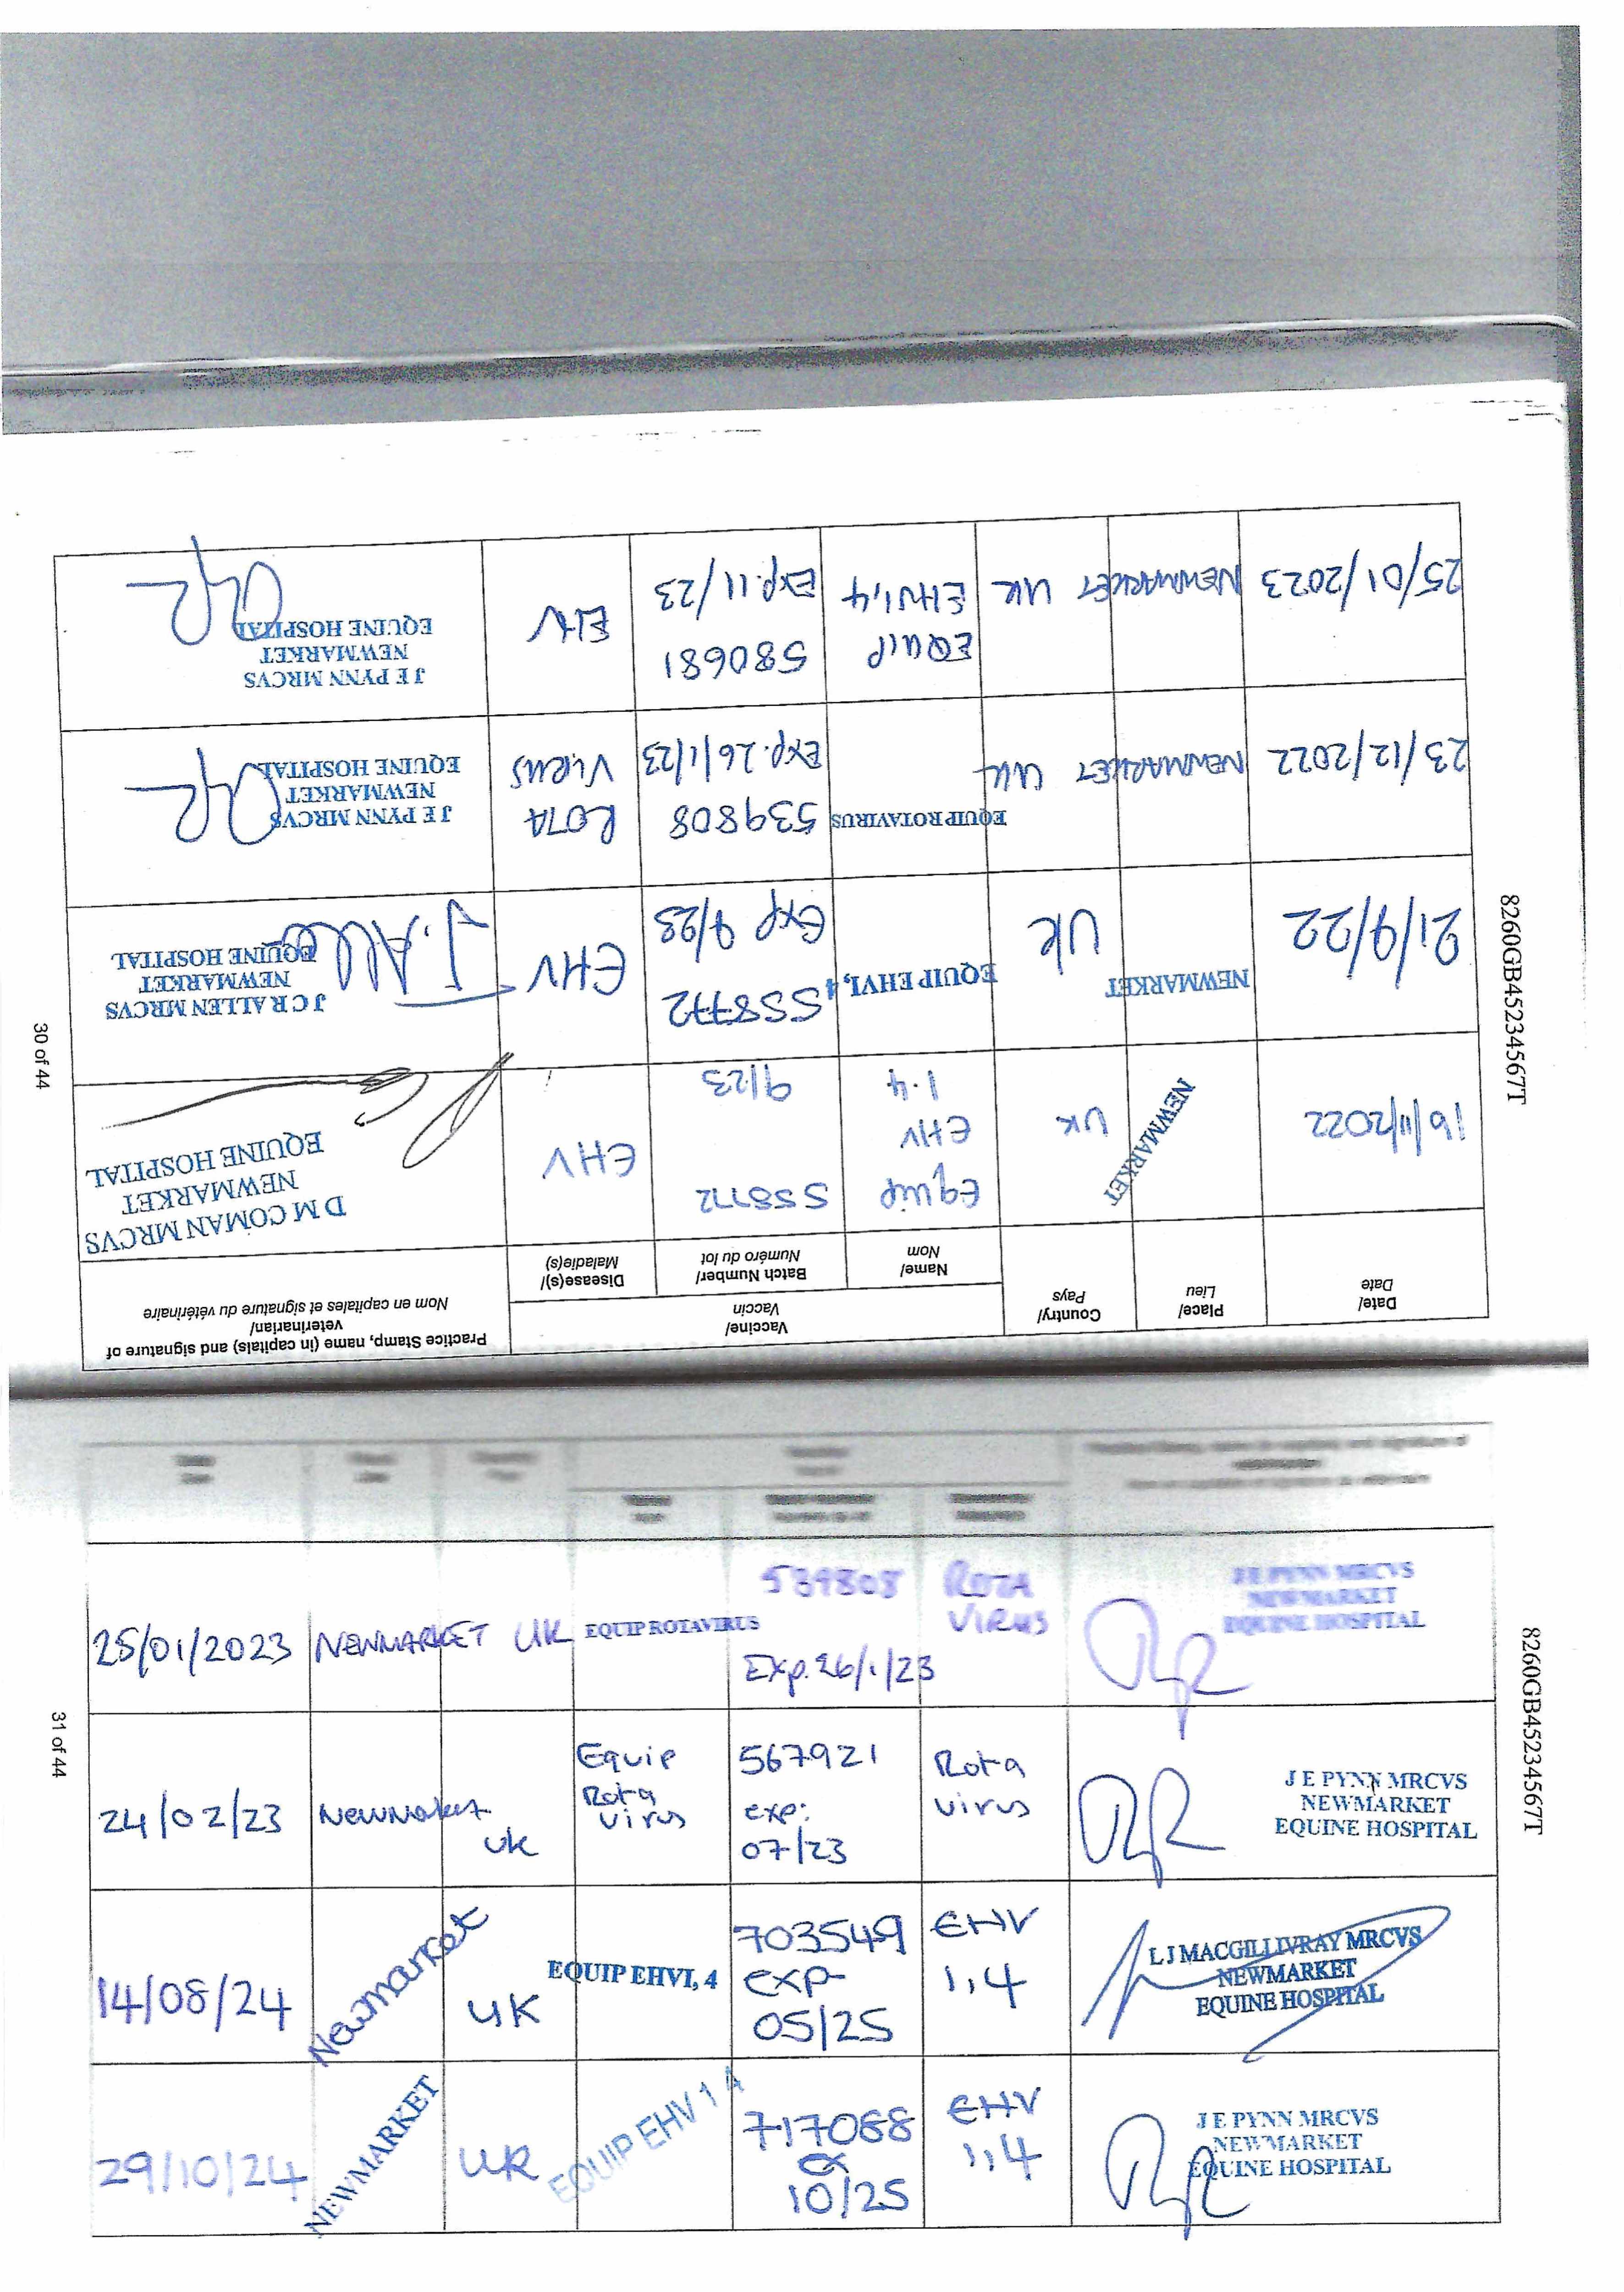 Date/
Date
Place/
Lieu
Country/
Pays
Vaccine/
Vaccin
Name/
Nom
Batch Number/
Numéro du lot
Disease(s)/
Maladie(s)
Practice Stamp, name (in capitals) and signature of
veterinarian/
Nom en capitales et signature du vétérinaire
16/11/2022
NEWMARKET
UK
Equip
EHV
1.4
558772
9/23
EHV
D M COMAN MRCVS
NEWMARKET
EQUINE HOSPITAL
21/9/22
NEWMARKET
UK
EQUIP EHV1, 4
558772
Exp 9/23
EHV
J C R ALLEN MRCVS
NEWMARKET
EQUINE HOSPITAL
J. Alle
23/12/2022
NEWMARKET
UK
EQUIP ROTAVIRUS
539808
Exp. 26/1/23
ROTA
VIRUS
J E PYNN MRCVS
NEWMARKET
EQUINE HOSPITAL
25/01/2023
NEWMARKET
UK
EQUIP
EHV1,4
580681
Exp. 11/23
EHV
J E PYNN MRCVS
NEWMARKET
EQUINE HOSPITAL
8260GB45234567T
30 of 44
25/01/2023
NEWMARKET
UK
EQUIP ROTAVIRUS
539808
Exp. 26/1/23
ROTA
VIRUS
J E PYNN MRCVS
NEWMARKET
EQUINE HOSPITAL
24/02/23
Newmarket
UK
Equip
Rota
virus
567921
exp:
07/23
Rota
virus
J E PYNN MRCVS
NEWMARKET
EQUINE HOSPITAL
14/08/24
Newmarket
UK
EQUIP EHV1, 4
703549
exp
05/25
EHV
1,4
L J MACGILLIVRAY MRCVS
NEWMARKET
EQUINE HOSPITAL
29/10/24
NEWMARKET
UK
EQUIP EHV 1 4
717068
10/25
EHV
1,4
J E PYNN MRCVS
NEWMARKET
EQUINE HOSPITAL
8260GB45234567T
31 of 44